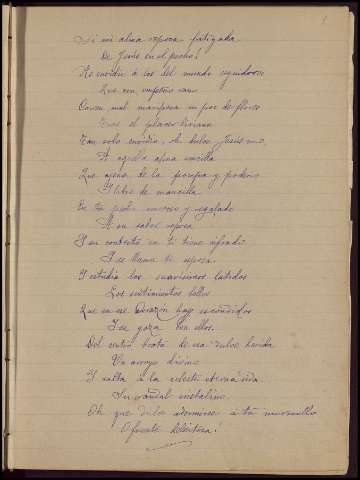 1
Si mi alma reposa fatigada
De Jesús en el pecho!
No envidio á los del mundo seguidores
Que con empeño van
Como mal mariposa en pos de flores
Tras el placer liviano
Tan solo envidio, oh dulce Jesús mio,
A aquella alma sencilla
Que agena de la pompa y poderio
Y libre de mancilla
En tu pecho amoroso y regalado
A su sabor reposa
Y su contento en ti tiene cifrado
Y se llama tu esposa.
Y estudia los suavísimos latidos
Los sentimientos bellos
Que en ese Corazón hay escondidos
Y se goza con ellos.
Del centro brota de esa dulce herida
Un arroyo divino
Y salta á la celeste eterna vida
Su caudal cristalino.
Oh que dulce adormirse á tu murmullo
O fuente deleitosa!